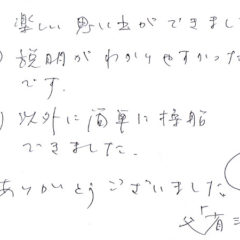 楽しい思い出ができました
説明がわかりやすかった
です.
以外に簡単に操船
できました.
ありがとうございました